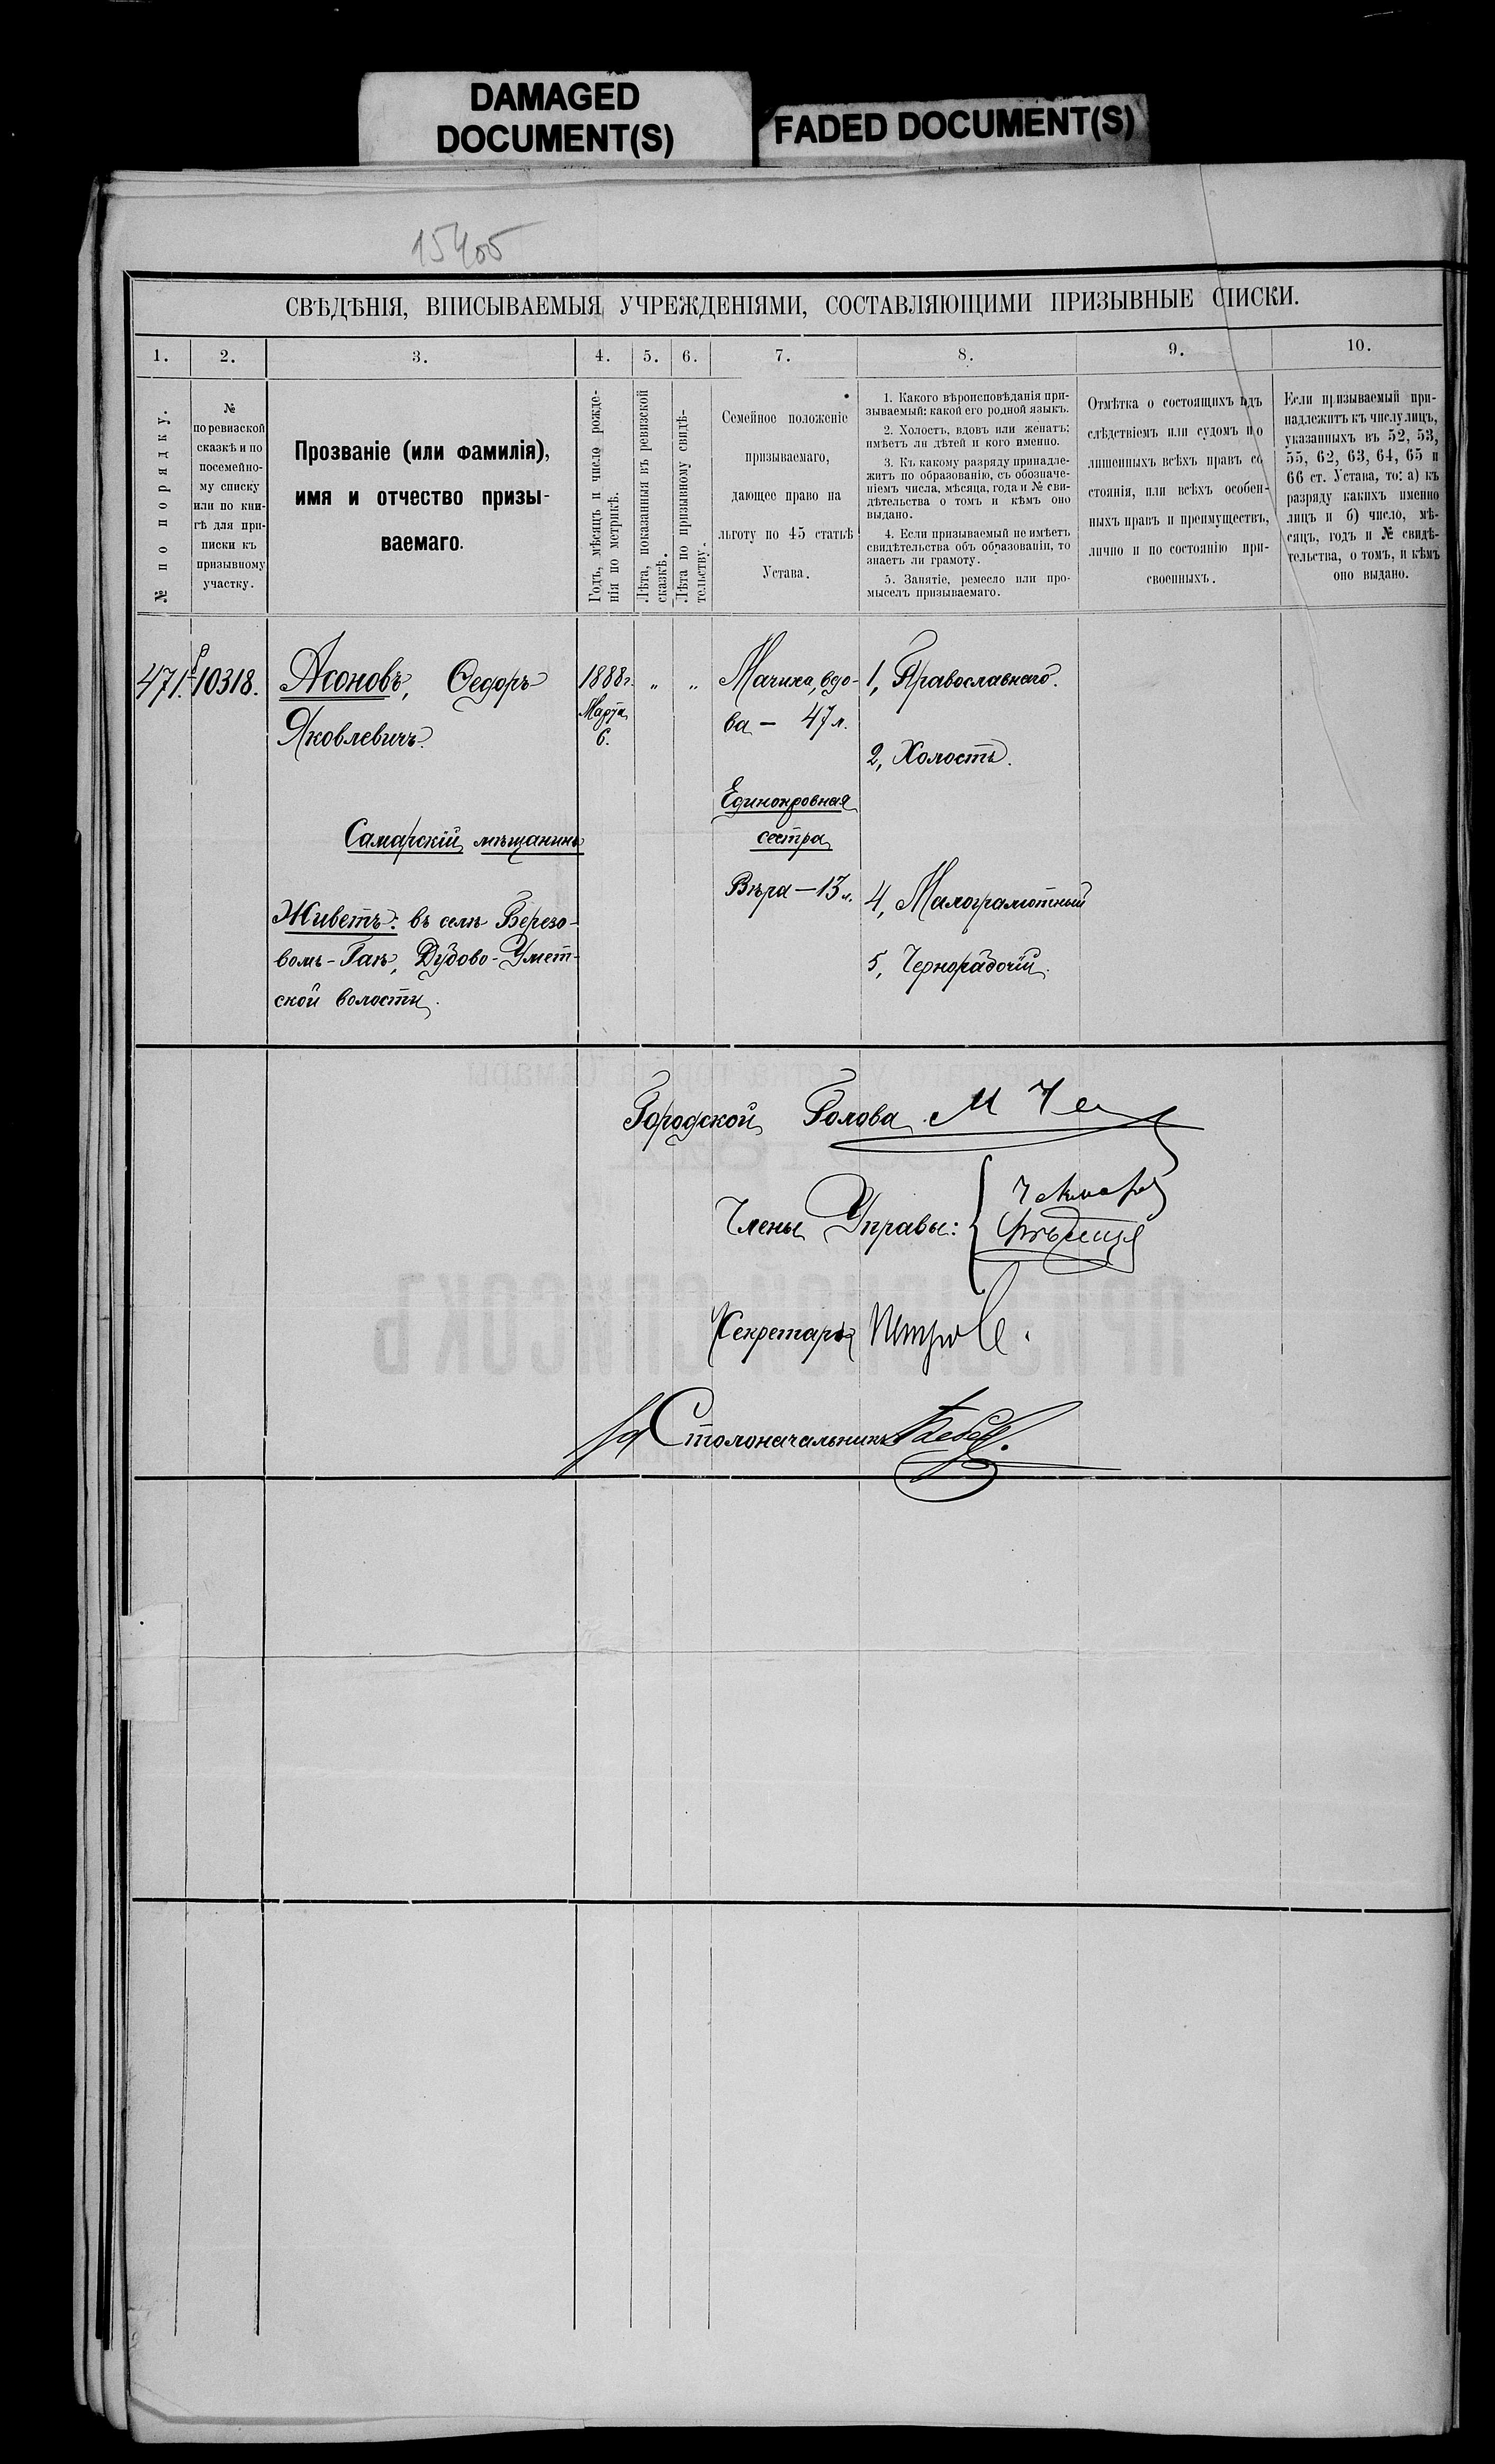 DAMAGED
DOCUMENT(S)
FADED DOCUMENT(S)
15405
СВѢДѢНІЯ, ВПИСЫВАЕМЫЯ УЧРЕЖДЕНІЯМИ, СОСТАВЛЯЮЩИМИ ПРИЗЫВНЫЕ СПИСКИ.
1. 2. 3. 4. 5. 6. 7. 8. 9. 10.
№ по порядку.
№
по ревизской
сказкѣ и по
посемейно-
му списку
или по кни-
гѣ для при-
писки къ
призывному
участку.
Прозваніе (или фамилія),
имя и отчество призы-
ваемаго.
Годъ, мѣсяцъ и число рожде-
нія по метрикѣ.
Лѣта, показанныя въ ревизской
сказкѣ.
Лѣта по призывному свидѣ-
тельству.
Семейное положеніе
призываемаго,
дающее право на
льготу по 45 статьѣ
Устава.
1. Какого вѣроисповѣданія при-
зываемый; какой его родной языкъ.
2. Холостъ, вдовъ или женатъ;
имѣетъ ли дѣтей и кого именно.
3. Къ какому разряду принадле-
житъ по образованію, съ обозначе-
ніемъ числа, мѣсяца, года и № сви-
дѣтельства о томъ и кѣмъ оно
выдано.
4. Если призываемый не имѣетъ
свидѣтельства объ образованіи, то
знаетъ ли грамоту.
5. Занятіе, ремесло или про-
мыселъ призываемаго.
Отмѣтка о состоящихъ подъ
слѣдствіемъ или судомъ и о
лишенныхъ всѣхъ правъ со
стоянія, или всѣхъ особен-
ныхъ правъ и преимуществъ,
лично и по состоянію при-
своенныхъ.
Если призываемый при-
надлежитъ къ числу лицъ,
указанныхъ въ 52, 53,
55, 62, 63, 64, 65 и
66 ст. Устава, то: а) къ
разряду какихъ именно
лицъ и б) число, мѣ-
сяцъ, годъ и № свидѣ-
тельства, о томъ, и кѣмъ
оно выдано.
471. 10318.
Асоновъ, Ѳедоръ
Яковлевичъ.
Самарскій мѣщанинъ
Живетъ: въ селѣ Березо-
вомъ-Гаѣ, Дубово-Умет-
ской волости.
1888 г.
Марта
6.
" "
Мачиха, вдо-
ва - 47 л.
Единокровная
сестра
Вѣра - 13 л.
1, Православнаго.
2, Холостъ.
4, Малограмотный
5, Чернорабочій.
Городской Голова
Члены Управы:
Секретарь
Столоначальникъ
ПРИЗЫВНОЙ СПИСОКЪ